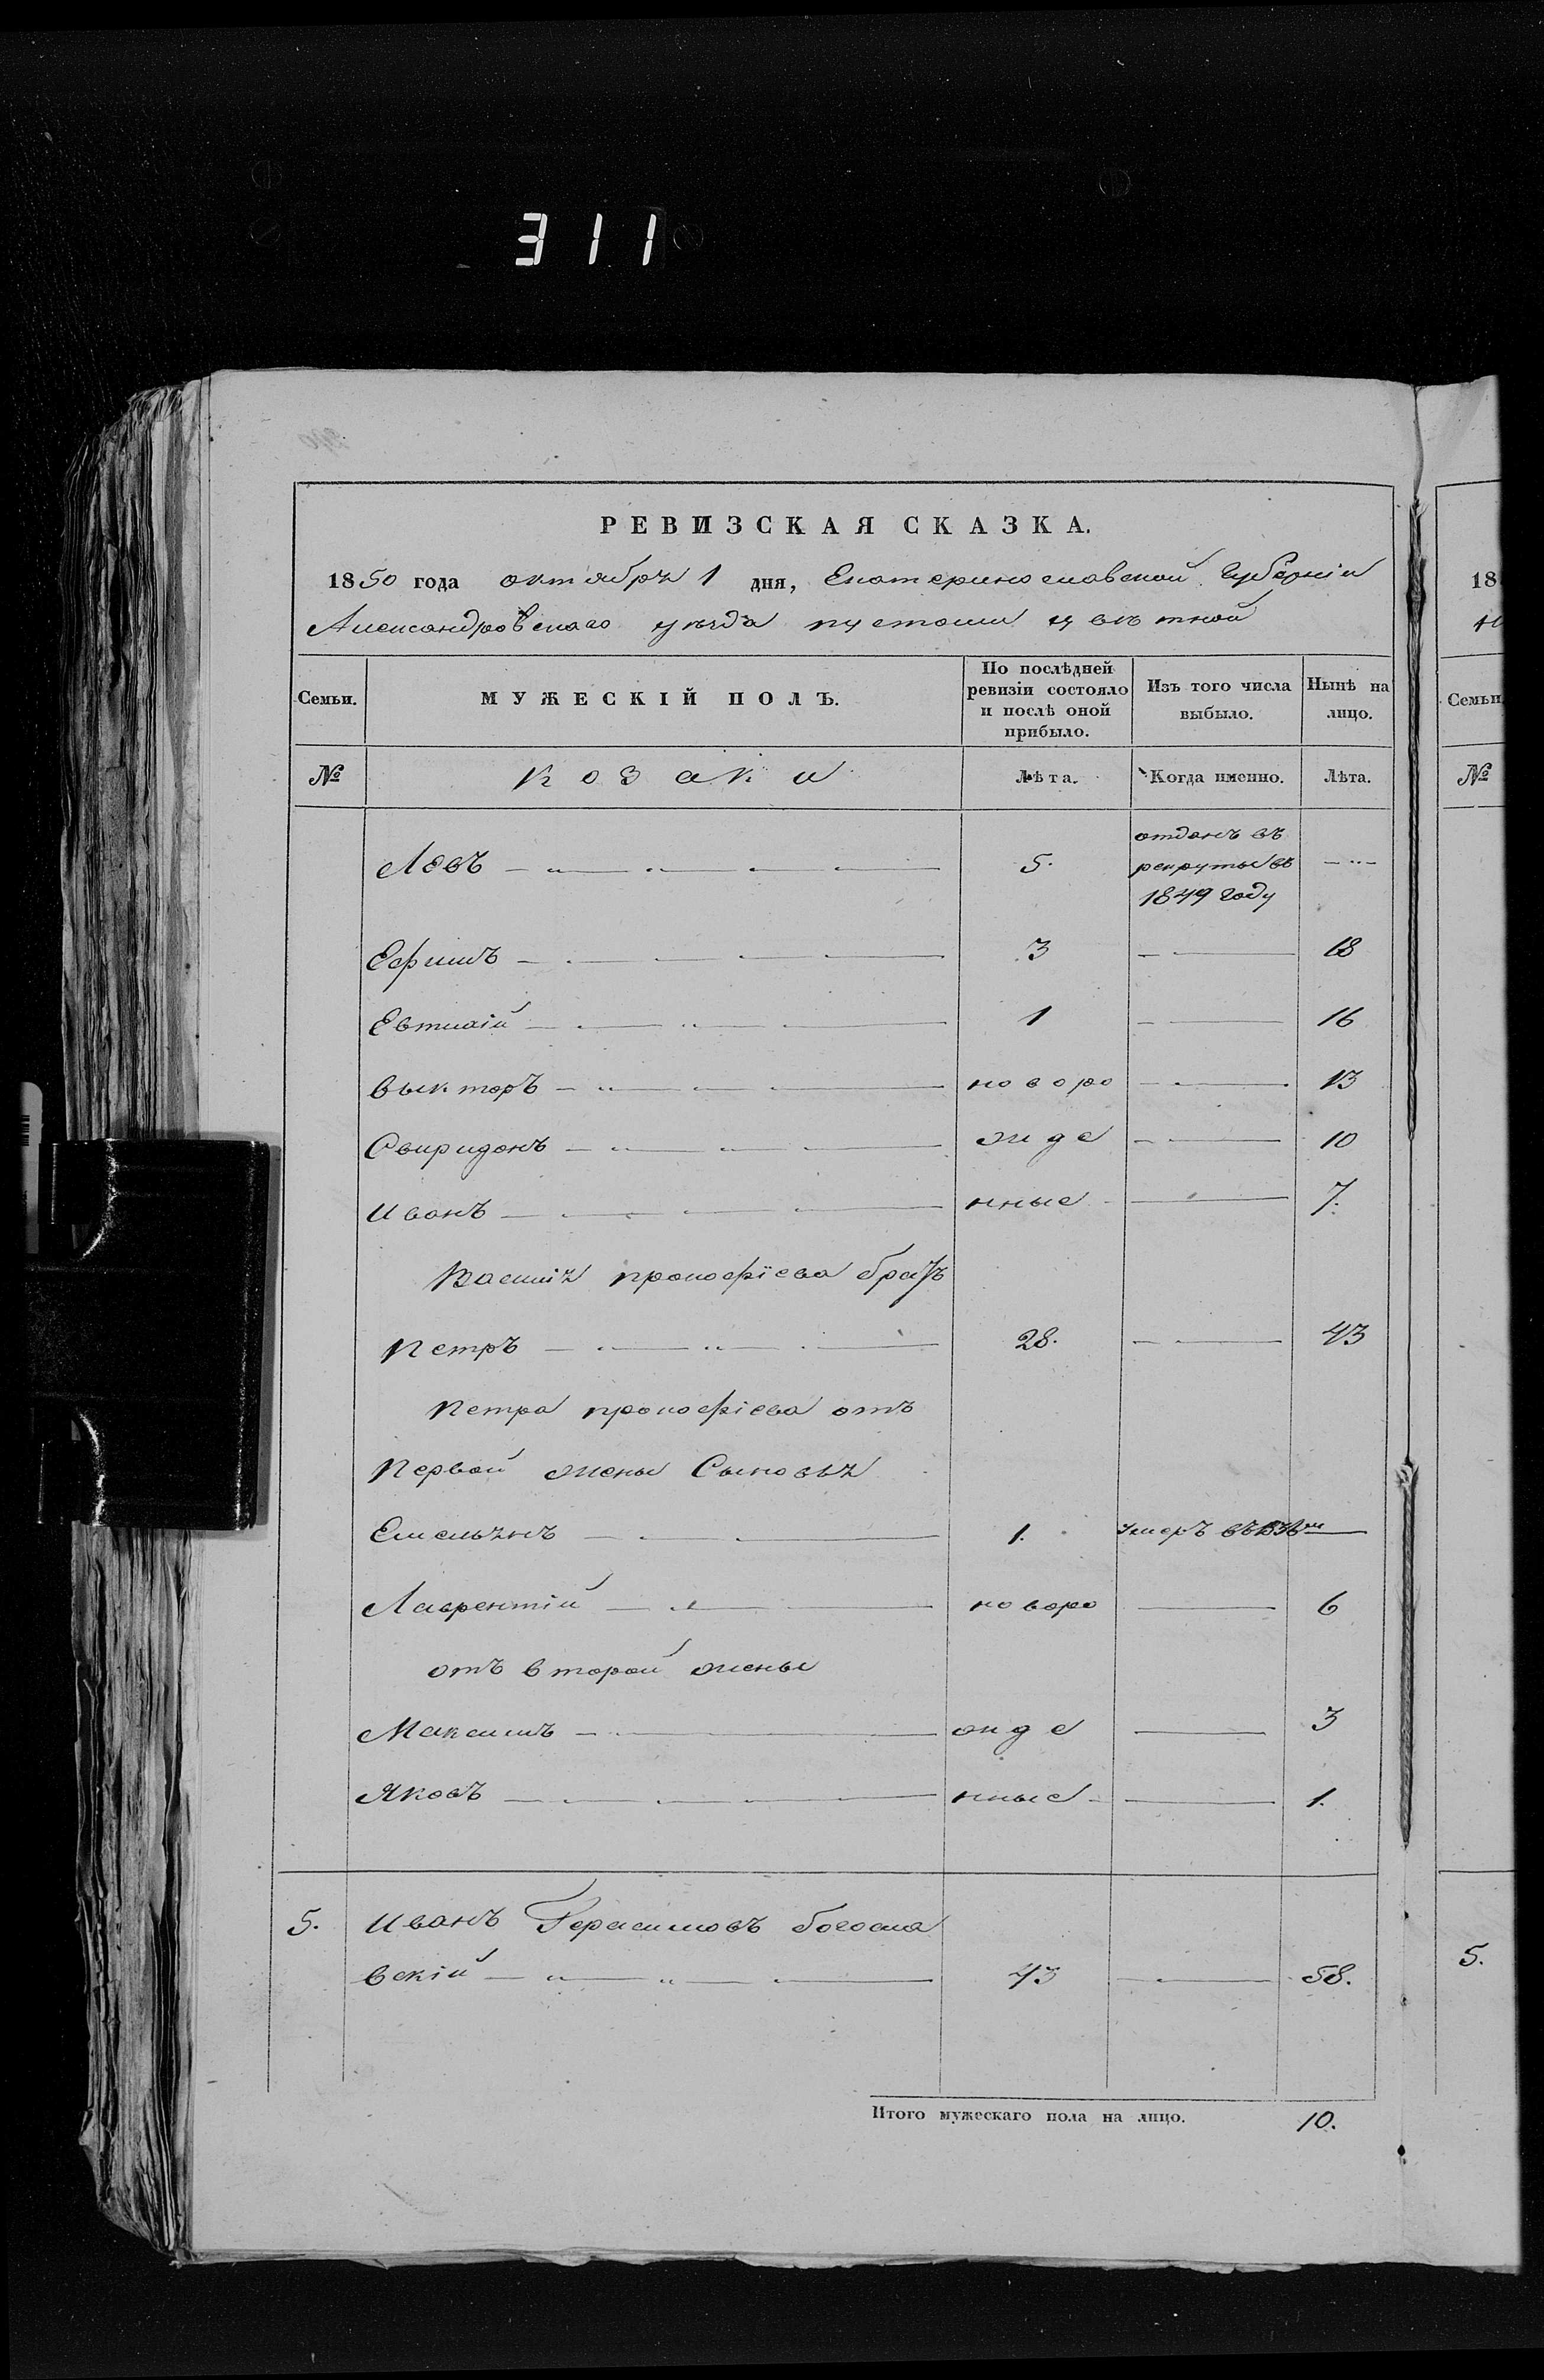 311
РЕВИЗСКАЯ СКАЗКА.
1850 года октября 1 дня, Екатеринославской Губерніи
Александровскаго уѣзда пустоши цвѣтной
Семьи. МУЖЕСКІЙ ПОЛЪ. По послѣдней ревизіи состояло и послѣ оной прибыло. Изъ того числа выбыло. Нынѣ на лицо.
№ Козаки Лѣта. Когда именно. Лѣта.
Левъ 5. отданъ въ рекруты въ 1849 году
Ефимъ 3 18
Евтихій 1 16
Выкторъ новоро 13
Свиридонъ жде 10
Иванъ нные 7.
Прокофіева братъ
Петръ 28. 43
Петра прокофіева отъ
Первой жены Сыновья
Емельянъ 1. умеръ въ
Лаврентій новоро 6
отъ второй жены
Максимъ жде 3
Яковъ нные 1.
5. Иванъ Герасимовъ богосла
вскій 43 58.
Итого мужескаго пола на лицо. 10.
18
Семьи
№
5.